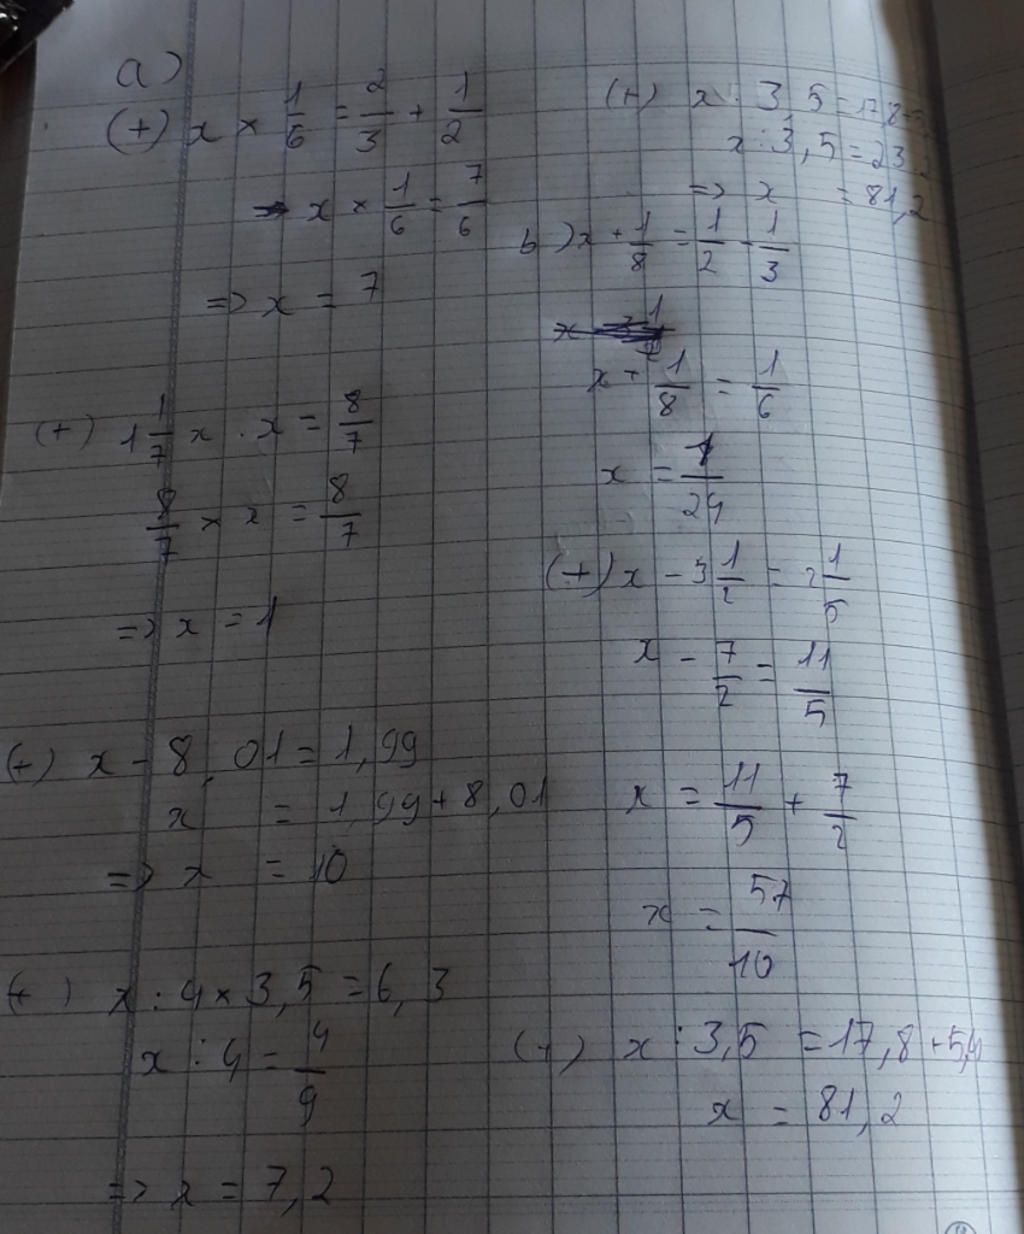 a)
(+) x × 1/6 = 2/3 + 1/2
x × 1/6 = 7/6
=> x = 7
(+) 1 1/7 x . x = 8/7
8/7 × x = 8/7
=> x = 1
(+) x - 8,01 = 1,99
x = 1,99 + 8,01
=> x = 10
(+) x : 4 × 3,5 = 6,3
x : 4 = 4/9
=> x = 7,2
(+) x : 3,5 = 17,8
x : 3,5 = 23,
=> x = 81,2
b) x + 1/8 = 1/2 - 1/3
x + 1/8 = 1/6
x = 1/24
(+) x - 3 1/2 = 2 1/5
x - 7/2 = 11/5
x = 11/5 + 7/2
x = 57/10
(+) x : 3,5 = 17,8 + 5,4
x = 81,2